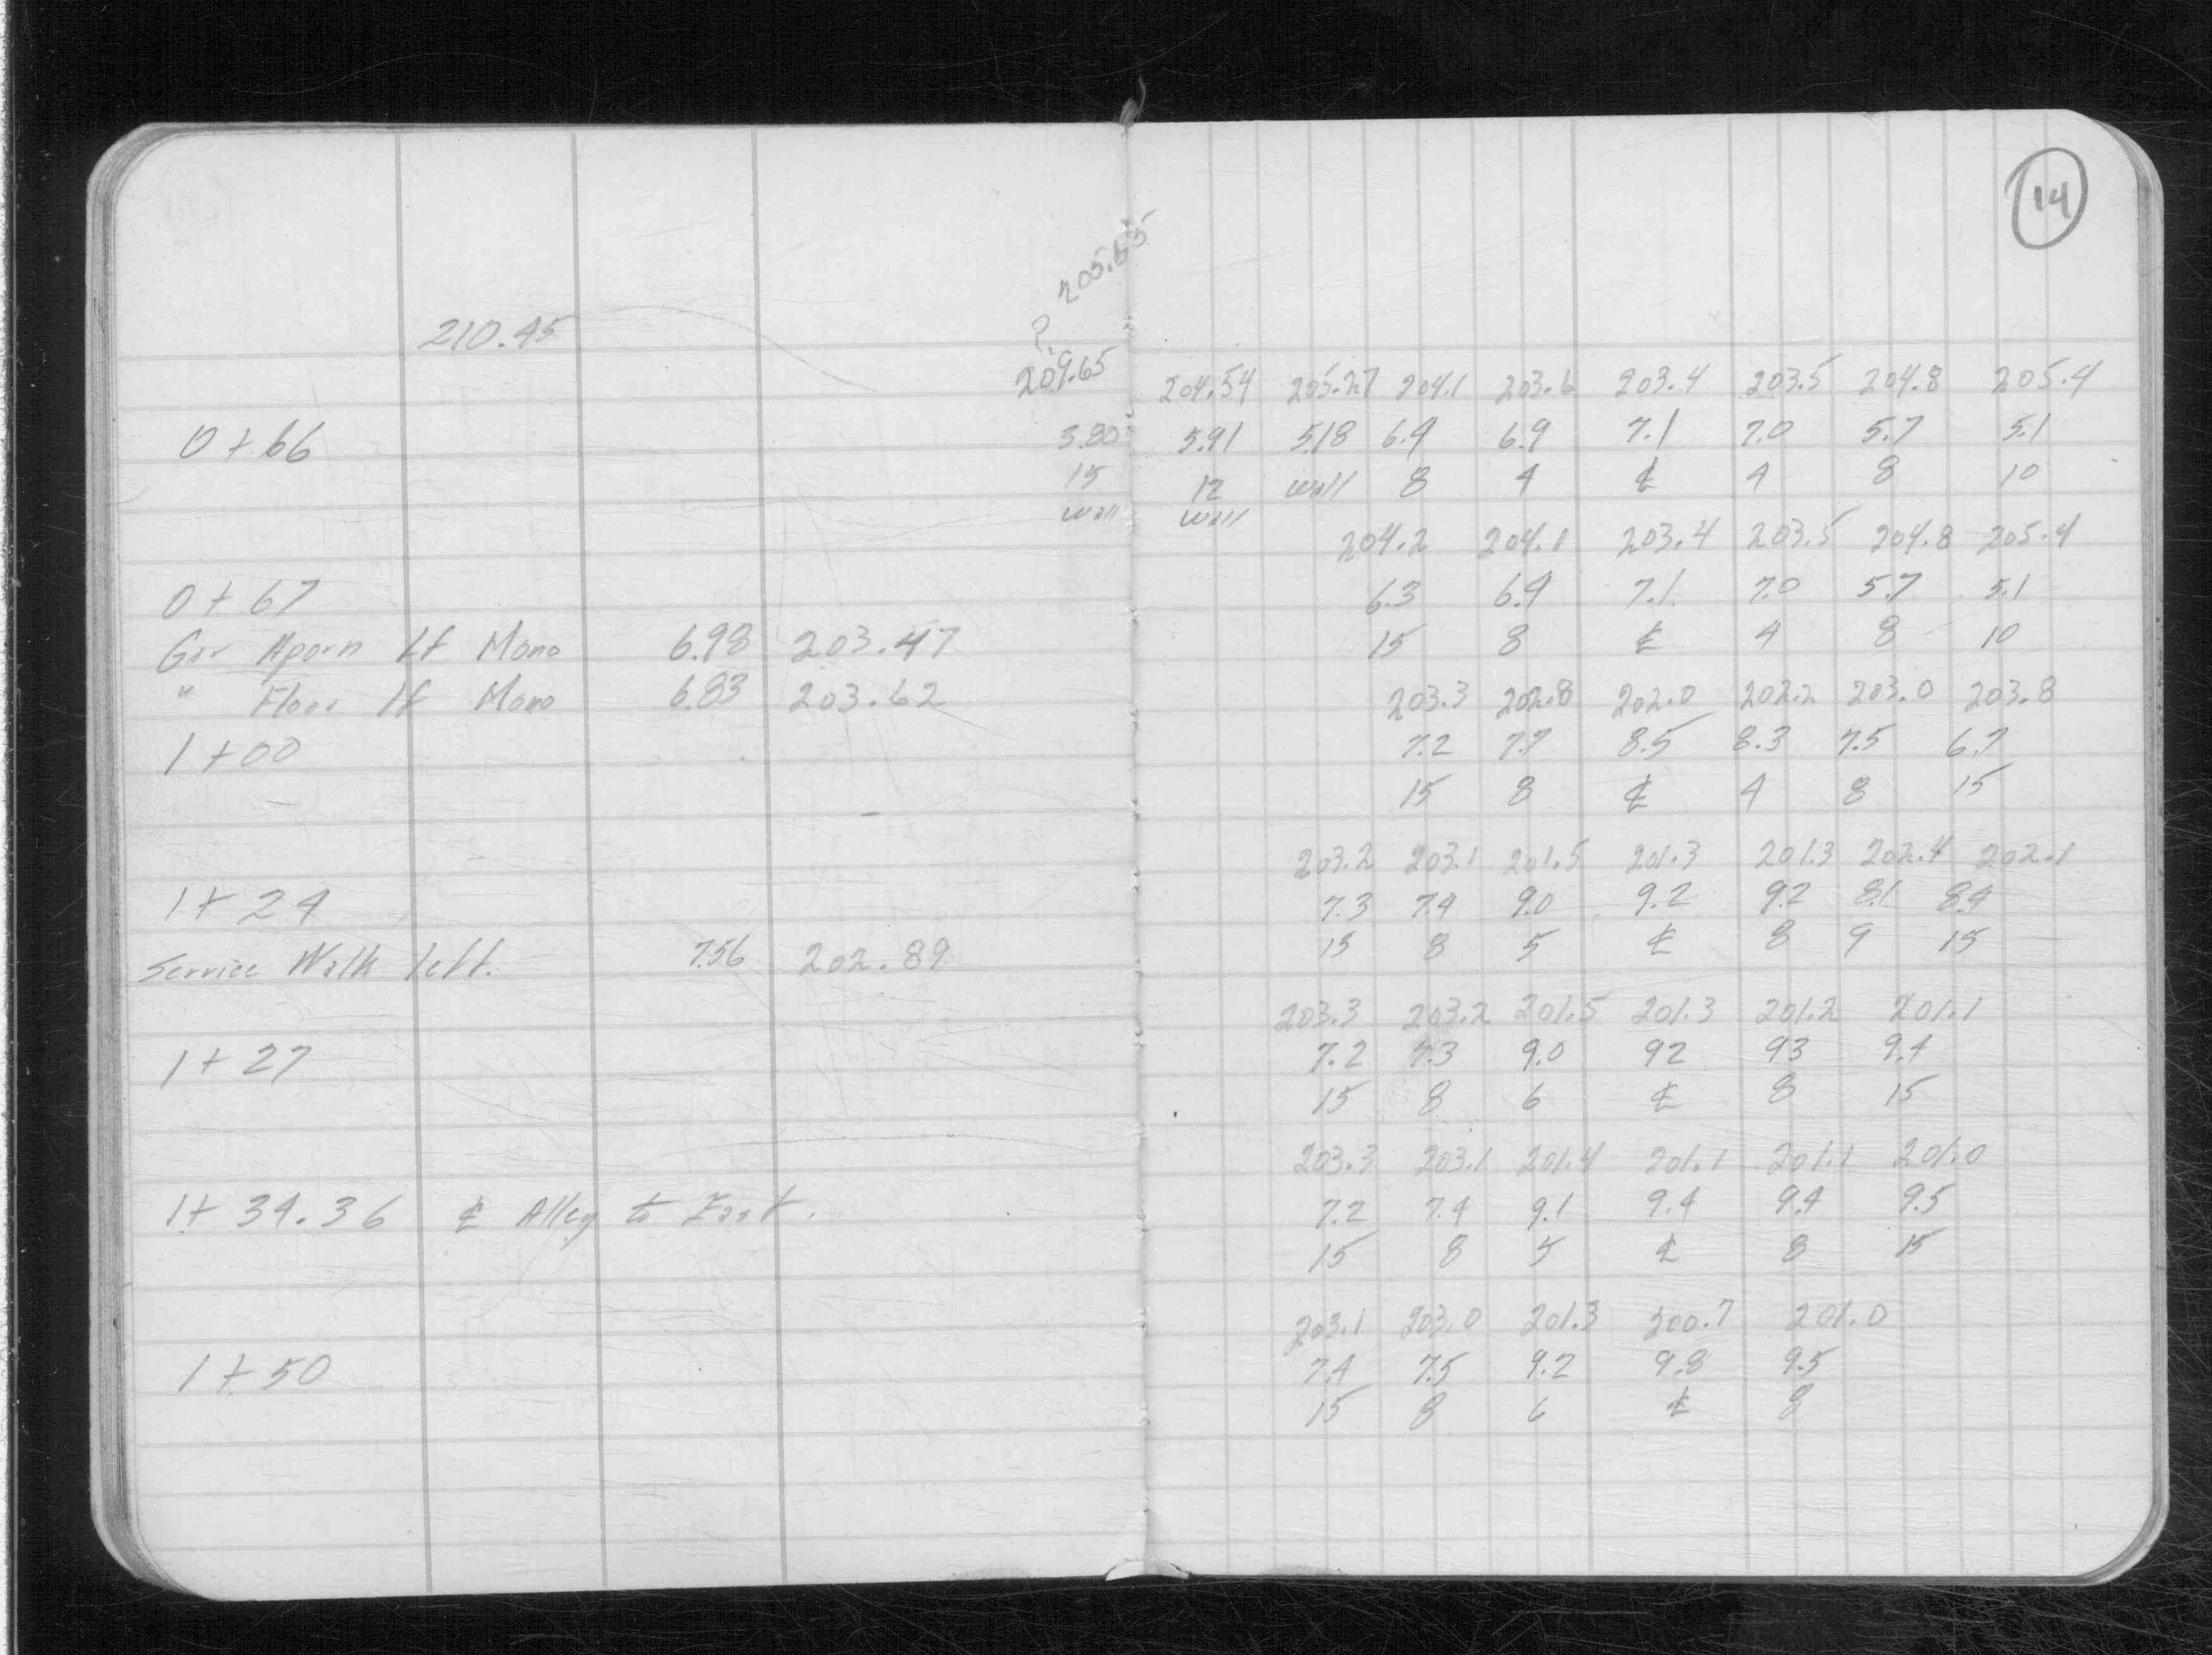 14
205.65
210.45 ?
209.65 204.54 205.27 204.1 203.6 203.4 203.5 204.8 205.4
0+66 5.80 5.91 5.18 6.4 6.9 7.1 7.0 5.7 5.1
15 12 wall 8 4 ℄ 4 8 10
wall wall
204.2 204.1 203.4 203.5 204.8 205.4
0+67 6.3 6.4 7.1 7.0 5.7 5.1
Gar Aporn lt Mono 6.98 203.47 15 8 ℄ 4 8 10
" Floor lt Mono 6.83 203.62 203.3 202.8 202.0 202.2 203.0 203.8
1+00 7.2 7.7 8.5 8.3 7.5 6.7
15 8 ℄ 4 8 15
203.2 203.1 201.5 201.3 201.3 202.4 202.1
1+24 7.3 7.4 9.0 9.2 9.2 8.1 8.4
Service Walk left. 7.56 202.89 15 8 5 ℄ 8 9 15
203.3 203.2 201.5 201.3 201.2 201.1
1+27 7.2 7.3 9.0 92 93 9.4
15 8 6 ℄ 8 15
203.3 203.1 201.4 201.1 201.1 201.0
1+34.36 ℄ Alley to East. 7.2 7.4 9.1 9.4 9.4 9.5
15 8 5 ℄ 8 15
203.1 203.0 201.3 200.7 201.0
1+50 7.4 7.5 9.2 9.8 9.5
15 8 6 ℄ 8